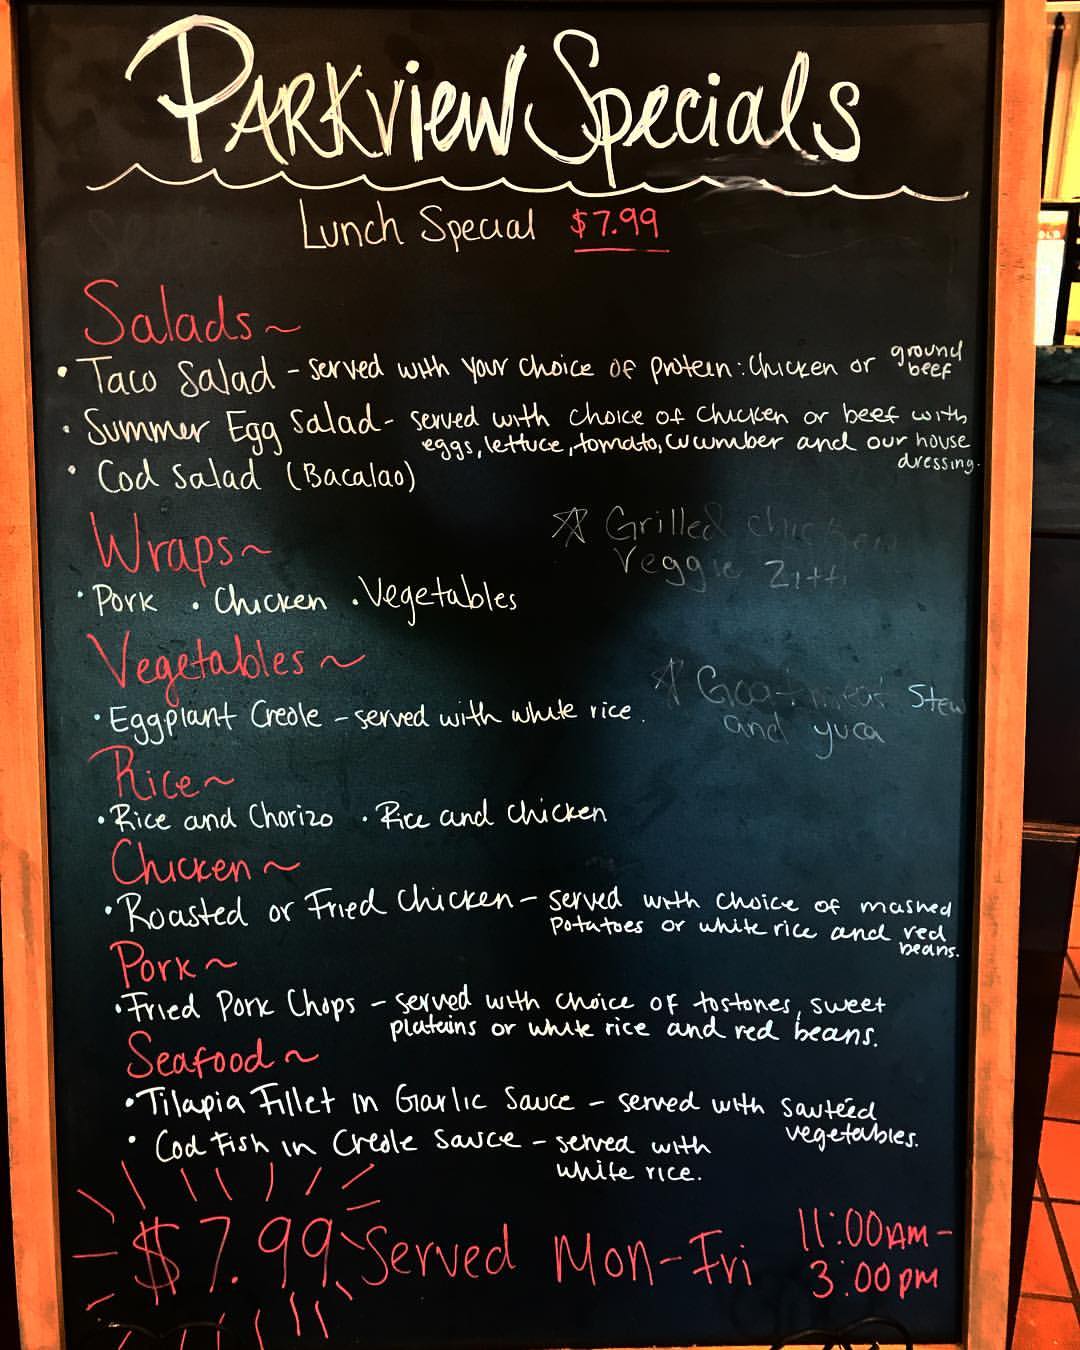 Parkview Specials
Lunch Special $7.99
Salads~
• Taco Salad - served with your choice of protein: Chicken or ground beef
• Summer Egg Salad - served with choice of chicken or beef with
eggs, lettuce, tomato, cucumber and our house
dressing.
• Cod Salad (Bacalao)
Wraps~
☆ Grilled chicken
Veggie Zitti
• Pork • Chicken • Vegetables
Vegetables~
☆ Goat meat Stew
and yuca
• Eggplant Creole - served with white rice.
Rice~
• Rice and Chorizo • Rice and chicken
Chicken~
• Roasted or Fried Chicken - served with choice of mashed
potatoes or white rice and red
beans.
Pork~
• Fried Pork Chops - served with choice of tostones, sweet
platains or white rice and red beans.
Seafood~
• Tilapia Fillet in Garlic Sauce - served with sautéed
vegetables.
• Cod Fish in Creole Sauce - served with
white rice.
$7.99 Served Mon-Fri 11:00AM-
3:00pm